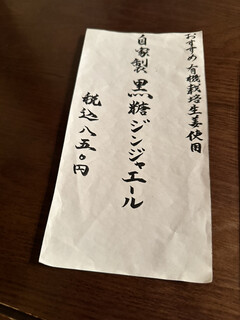 おすすめ有機栽培生姜使用
自家製黒糖ジンジャエール
税込八五〇円